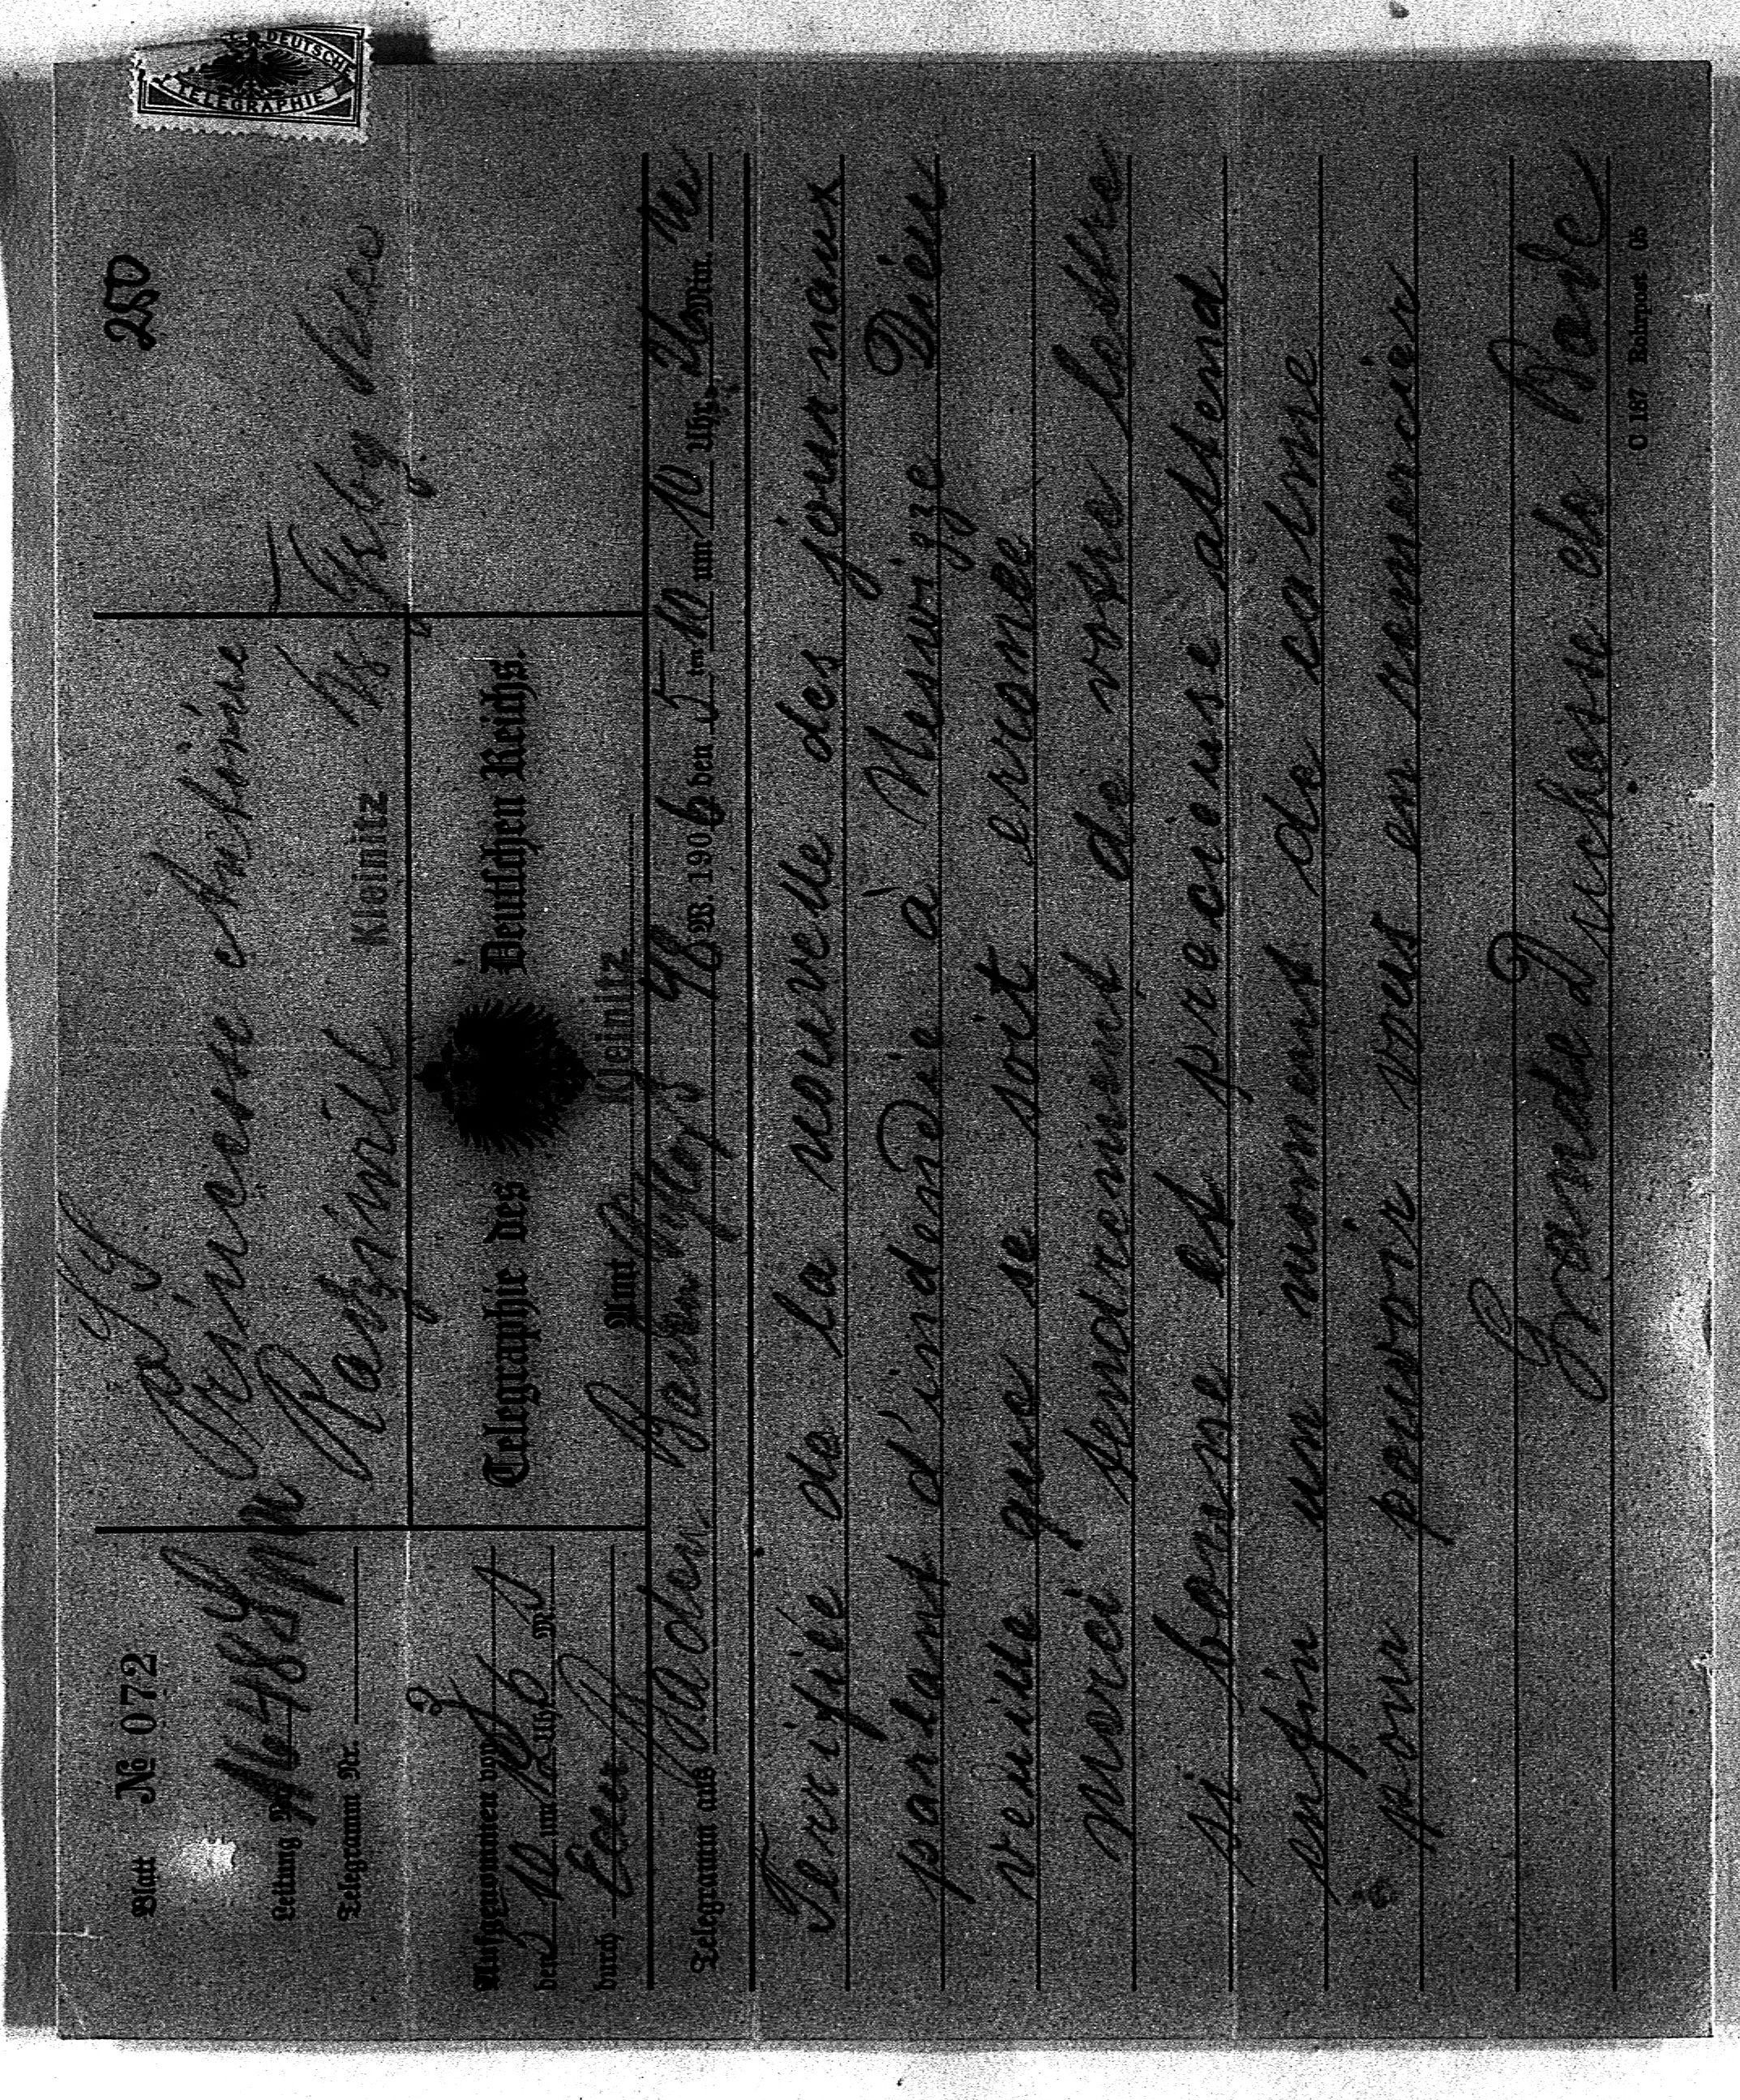 DEUTSCHE
TELEGRAPHIE
250
Blatt № 072
Leitung Nr.
Telegramm Nr.
Princesse Antoinine
Radziwill
Kleinitz
Telegraphie des Deutschen Reichs.
Amt
Kleinitz
Aufgenommen von
den 5/10 um 12 Uhr 6 M.
durch
Telegramm aus Baden Baden Schloss 98 W. 1906 den 5 ten 10 um 10 Uhr Mtn.
Terrifiée de la nouvelle des journaux
parlant d'indendie à Neswizze Dieu
veuille que se soit erronee
merci tendrement de votre lettre
si bonne et precieuse attend
enfin un moment de calme
pour pouvoir vous en remercier
Grande Duchesse de Bade
C 187 Rohrpost 05